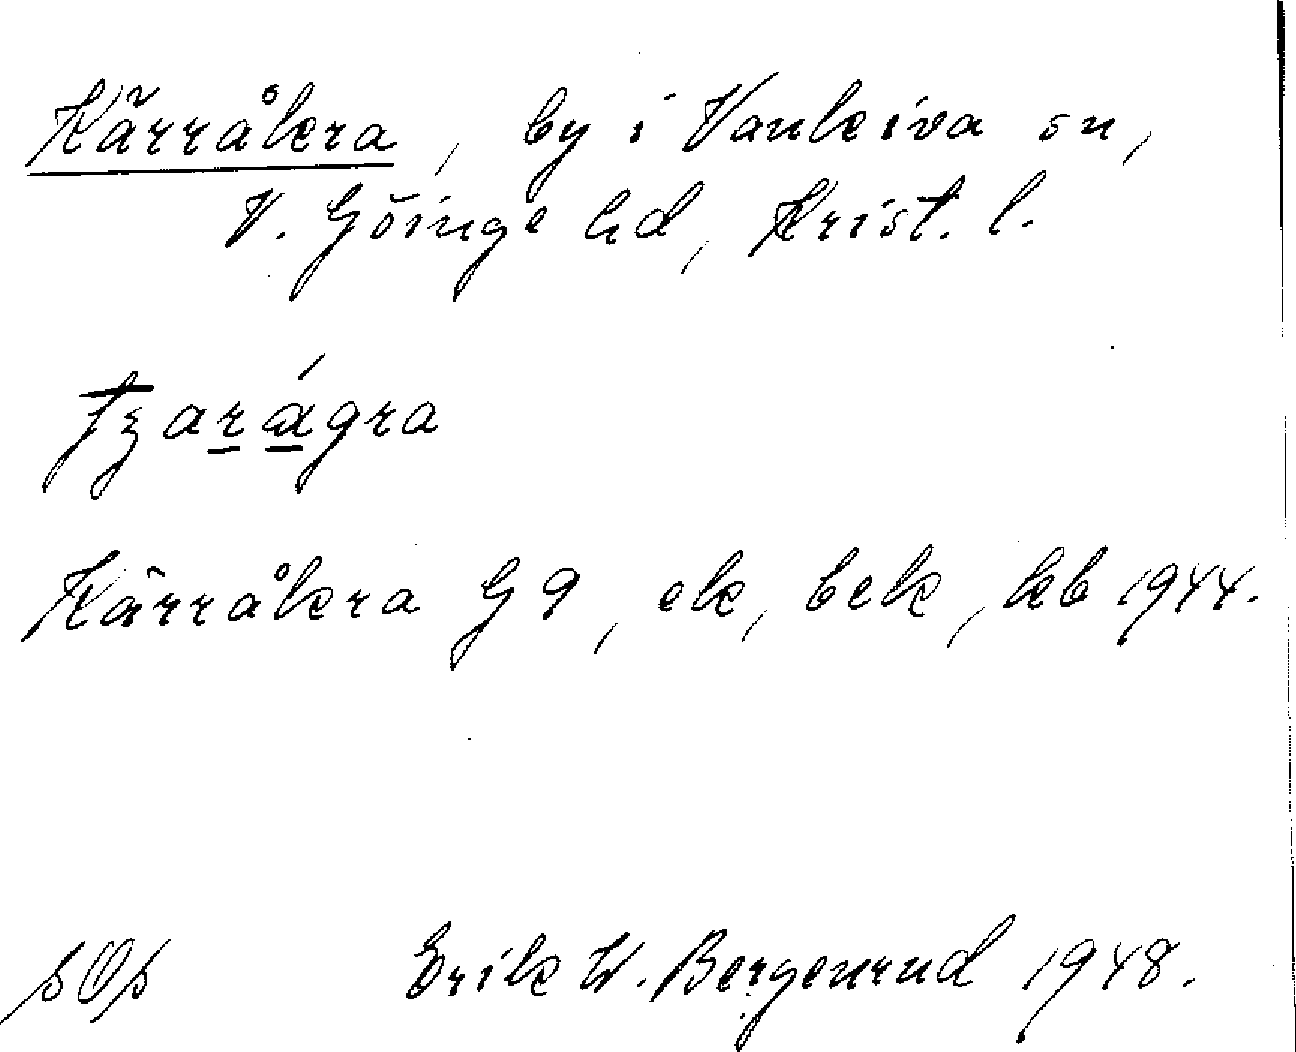 Kärråkra, by i Vankiva sn,
V. Göinge hd, Krist. l.
Kärråkra G 9, ek, bek, kb 1944.
Erik W. Bergenrud 1948.